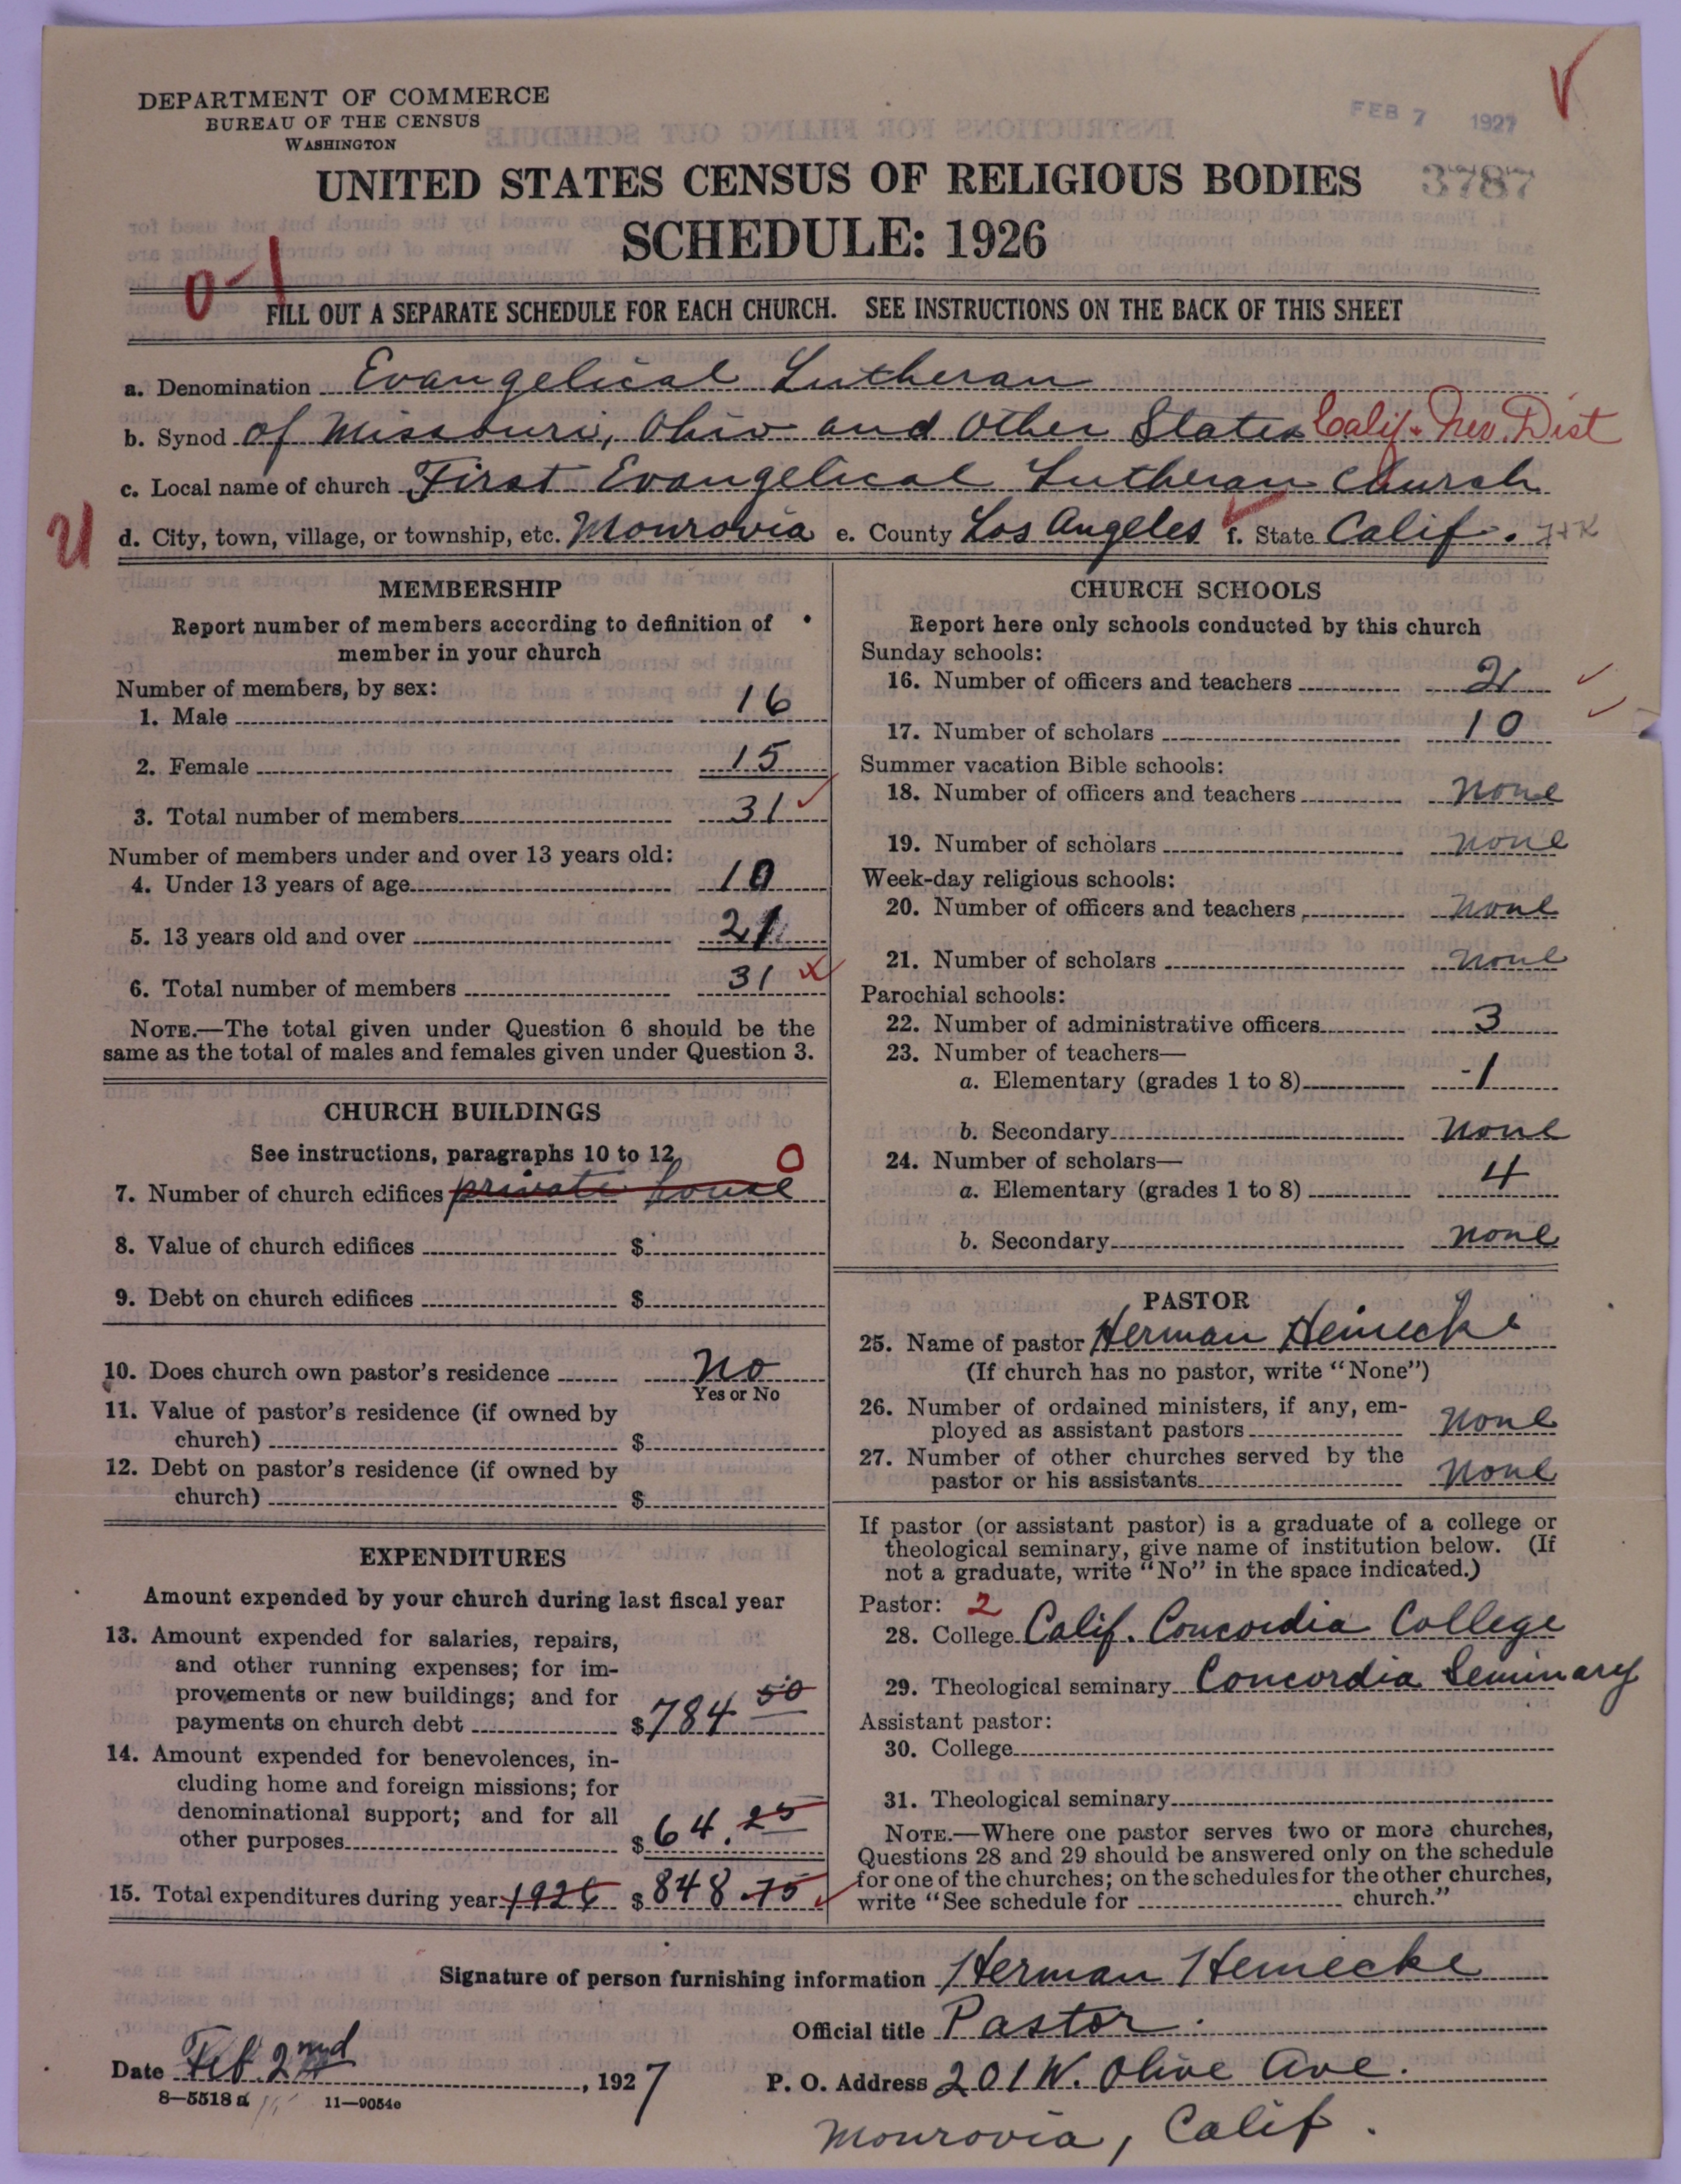 DEPARTMENT OF COMMERCE
BUREAU OF THE CENSUS
WASHINGTON
FEB 7 1927
UNITED STATES CENSUS OF RELIGIOUS BODIES
3787
SCHEDULE: 1926
0-1
FILL OUT A SEPARATE SCHEDULE FOR EACH CHURCH. SEE INSTRUCTIONS ON THE BACK OF THIS SHEET
a. Denomination Evangelical Lutheran
b. Synod of Missouri, Ohio and Other States Calif. Nev. Dist
c. Local name of church First Evangelical Lutheran Church
U
d. City, town, village, or township, etc. Monrovia e. County Los Angeles f. State Calif.
MEMBERSHIP
Report number of members according to definition of
member in your church
Number of members, by sex:
1. Male 16
2. Female 15
3. Total number of members 31
Number of members under and over 13 years old:
4. Under 13 years of age 10
5. 13 years old and over 21
6. Total number of members 31
NOTE.—The total given under Question 6 should be the
same as the total of males and females given under Question 3.
CHURCH BUILDINGS
See instructions, paragraphs 10 to 12
7. Number of church edifices private house 0
8. Value of church edifices $
9. Debt on church edifices $
10. Does church own pastor's residence No
Yes or No
11. Value of pastor's residence (if owned by
church) $
12. Debt on pastor's residence (if owned by
church) $
EXPENDITURES
Amount expended by your church during last fiscal year
13. Amount expended for salaries, repairs,
and other running expenses; for im-
provements or new buildings; and for
payments on church debt $784 50
14. Amount expended for benevolences, in-
cluding home and foreign missions; for
denominational support; and for all
other purposes $64.25
15. Total expenditures during year 1926 $848.75
CHURCH SCHOOLS
Report here only schools conducted by this church
Sunday schools:
16. Number of officers and teachers 2
17. Number of scholars 10
Summer vacation Bible schools:
18. Number of officers and teachers None
19. Number of scholars None
Week-day religious schools:
20. Number of officers and teachers None
21. Number of scholars None
Parochial schools:
22. Number of administrative officers 3
23. Number of teachers—
a. Elementary (grades 1 to 8) 1
b. Secondary None
24. Number of scholars—
a. Elementary (grades 1 to 8) 4
b. Secondary None
PASTOR
25. Name of pastor Herman Heinecke
(If church has no pastor, write "None")
26. Number of ordained ministers, if any, em-
ployed as assistant pastors None
27. Number of other churches served by the
pastor or his assistants None
If pastor (or assistant pastor) is a graduate of a college or
theological seminary, give name of institution below. (If
not a graduate, write "No" in the space indicated.)
Pastor: 2
28. College Calif. Concordia College
29. Theological seminary Concordia Seminary
Assistant pastor:
30. College
31. Theological seminary
NOTE.—Where one pastor serves two or more churches,
Questions 28 and 29 should be answered only on the schedule
for one of the churches; on the schedules for the other churches,
write "See schedule for church."
Signature of person furnishing information Herman Heinecke
Official title Pastor.
Date Feb. 2nd, 1927
P. O. Address 201 W. Olive Ave.
8—5518 a 11—9054c
Monrovia, Calif.